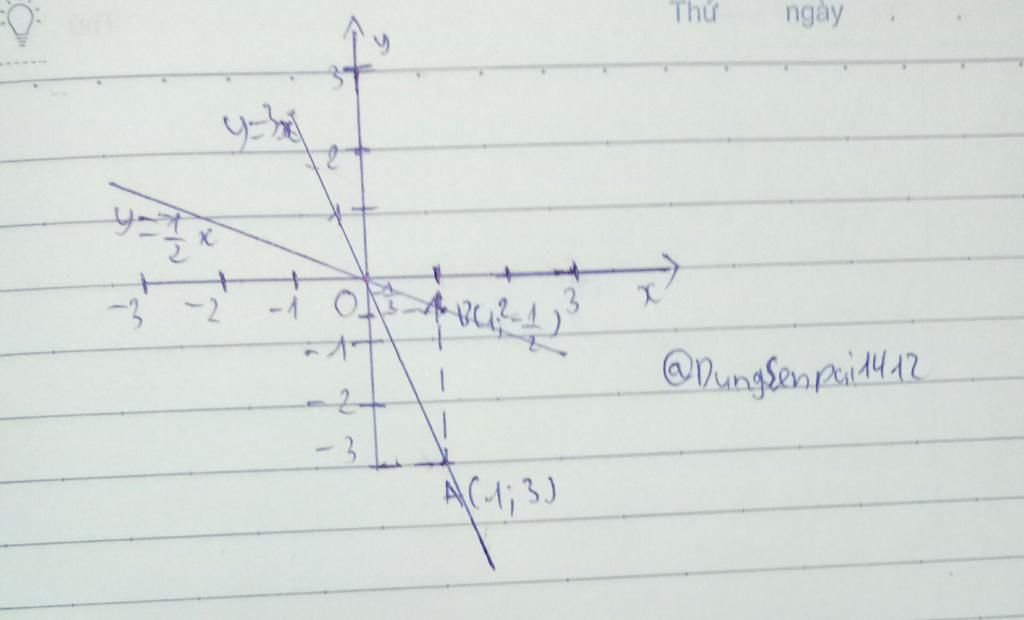 Thứ ngày . .
y
3
y=3x
2
1
y=-1/2 x
-3 -2 -1 O 1 2 3 x
B(1;-1/2)
-1
@DungSenpai1412
-2
-3
A(1;3)